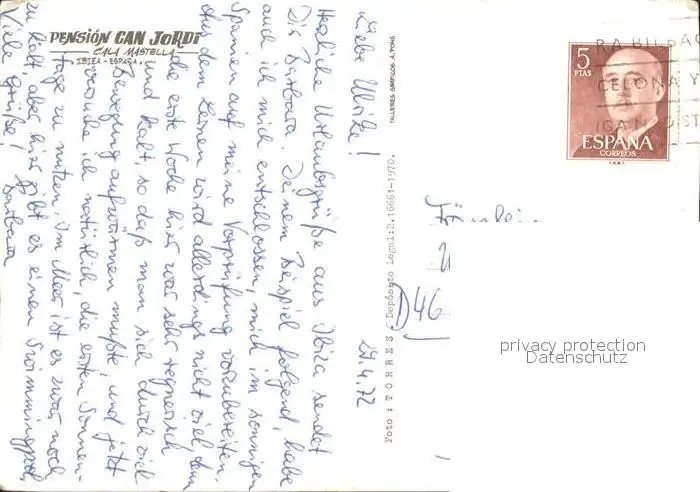 PENSIÓN CAN JORDI
CALA MASTELLA
IBIZA - ESPAÑA
29.4.72
Liebe Ulrike!
Herzliche Urlaubsgrüße aus Ibiza sendet
Dir Barbara. Deinem Beispiel folgend, habe
auch ich mich entschlossen, mich im sonnigen
Spanien auf meine Vorprüfung vorzubereiten.
Aus dem Lernen wird allerdings nicht viel, denn
die erste Woche hier war sehr regnerisch
und kalt, so daß man sich durch viel
Bewegung aufwärmen mußte, und jetzt
versuche ich natürlich, die ersten Sonnen-
tage zu nutzen. Im Meer ist es zwar noch
zu kalt, aber hier gibt es einen Swimmingpool.
Viele Grüße! Barbara
Foto: TORRES - Depósito Legal: B. 16661-1970.
TALLERES GRAFICOS A. PONS
5
PTAS
ESPAÑA
CORREOS
RA BILBAO
CELONA Y
Fräulein
D46
privacy protection
Datenschutz